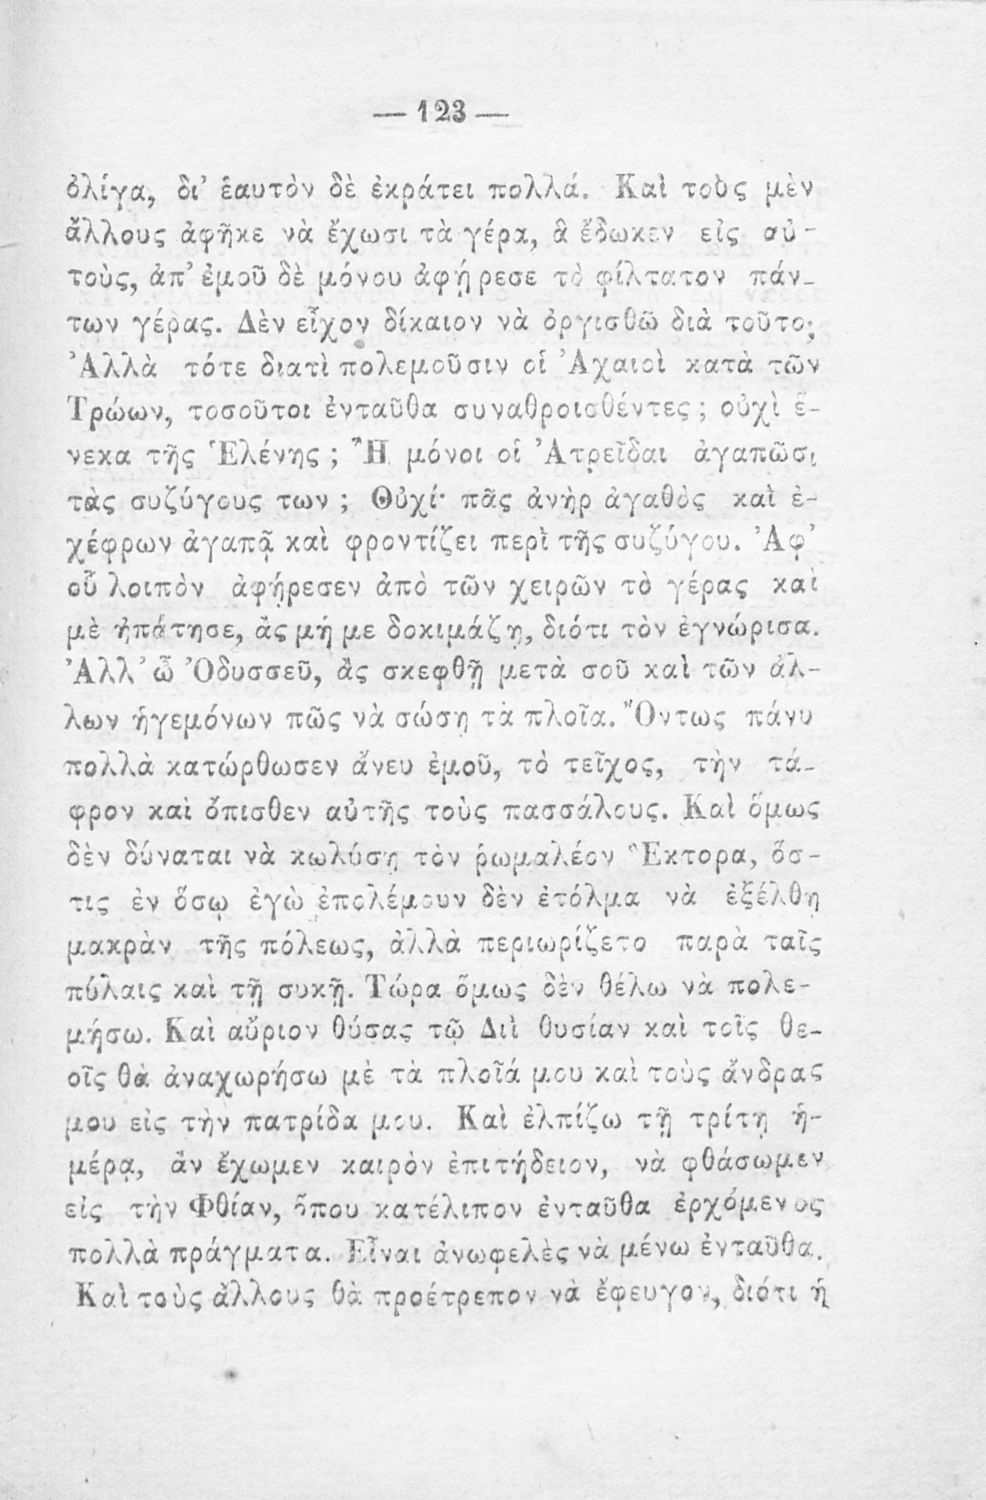 — 123 —
ὀλίγα, δι’ ἑαυτὸν δὲ ἐκράτει πολλά. Καὶ τοὺς μὲν
ἄλλους ἀφῆκε νὰ ἔχωσι τὰ γέρα, ἃ ἔδωκεν εἰς αὐ-
τοὺς, ἀπ’ ἐμοῦ δὲ μόνου ἀφῄρεσε τὸ φίλτατον πάν-
των γέρας. Δὲν εἶχον δίκαιον νὰ ὀργισθῶ διὰ τοῦτο;
Ἀλλὰ τότε διατὶ πολεμοῦσιν οἱ Ἀχαιοὶ κατὰ τῶν
Τρώων, τοσοῦτοι ἐνταῦθα συναθροισθέντες; οὐχὶ ἕ-
νεκα τῆς Ἑλένης; Ἢ μόνοι οἱ Ἀτρεῖδαι ἀγαπῶσι
τὰς συζύγους των; Οὐχί· πᾶς ἀνὴρ ἀγαθὸς καὶ ἐ-
χέφρων ἀγαπᾷ καὶ φροντίζει περὶ τῆς συζύγου. Ἀφ’
οὗ λοιπὸν ἀφῄρεσεν ἀπὸ τῶν χειρῶν τὸ γέρας καὶ
μὲ ἠπάτησε, ἂς μή με δοκιμάζῃ, διότι τὸν ἐγνώρισα.
Ἀλλ’ ὦ Ὀδυσσεῦ, ἂς σκεφθῇ μετὰ σοῦ καὶ τῶν ἀλ-
λων ἡγεμόνων πῶς νὰ σώσῃ τὰ πλοῖα. Ὄντως πάνυ
πολλὰ κατώρθωσεν ἄνευ ἐμοῦ, τὸ τεῖχος, τὴν τά-
φρον καὶ ὄπισθεν αὐτῆς τοὺς πασσάλους. Καὶ ὅμως
δὲν δύναται νὰ κωλύσῃ τὸν ῥωμαλέον Ἕκτορα, ὅσ-
τις ἐν ὅσῳ ἐγὼ ἐπολέμουν δὲν ἐτόλμα νὰ ἐξέλθῃ
μακρὰν τῆς πόλεως, ἀλλὰ περιωρίζετο παρὰ ταῖς
πύλαις καὶ τῇ συκῇ. Τώρα ὅμως δὲν θέλω νὰ πολε-
μήσω. Καὶ αὔριον θύσας τῷ Διῒ θυσίαν καὶ τοῖς θε-
οῖς θὰ ἀναχωρήσω μὲ τὰ πλοῖά μου καὶ τοὺς ἄνδρας
μου εἰς τὴν πατρίδα μου. Καὶ ἐλπίζω τῇ τρίτῃ ἡ-
μέρᾳ, ἂν ἔχωμεν καιρὸν ἐπιτήδειον, νὰ φθάσωμεν
εἰς τὴν Φθίαν, ὅπου κατέλιπον ἐνταῦθα ἐρχόμενος
πολλὰ πράγματα. Εἶναι ἀνωφελὲς νὰ μένω ἐνταῦθα.
Καὶ τοὺς ἄλλους θὰ προέτρεπον νὰ ἔφευγον, διότι ἡ